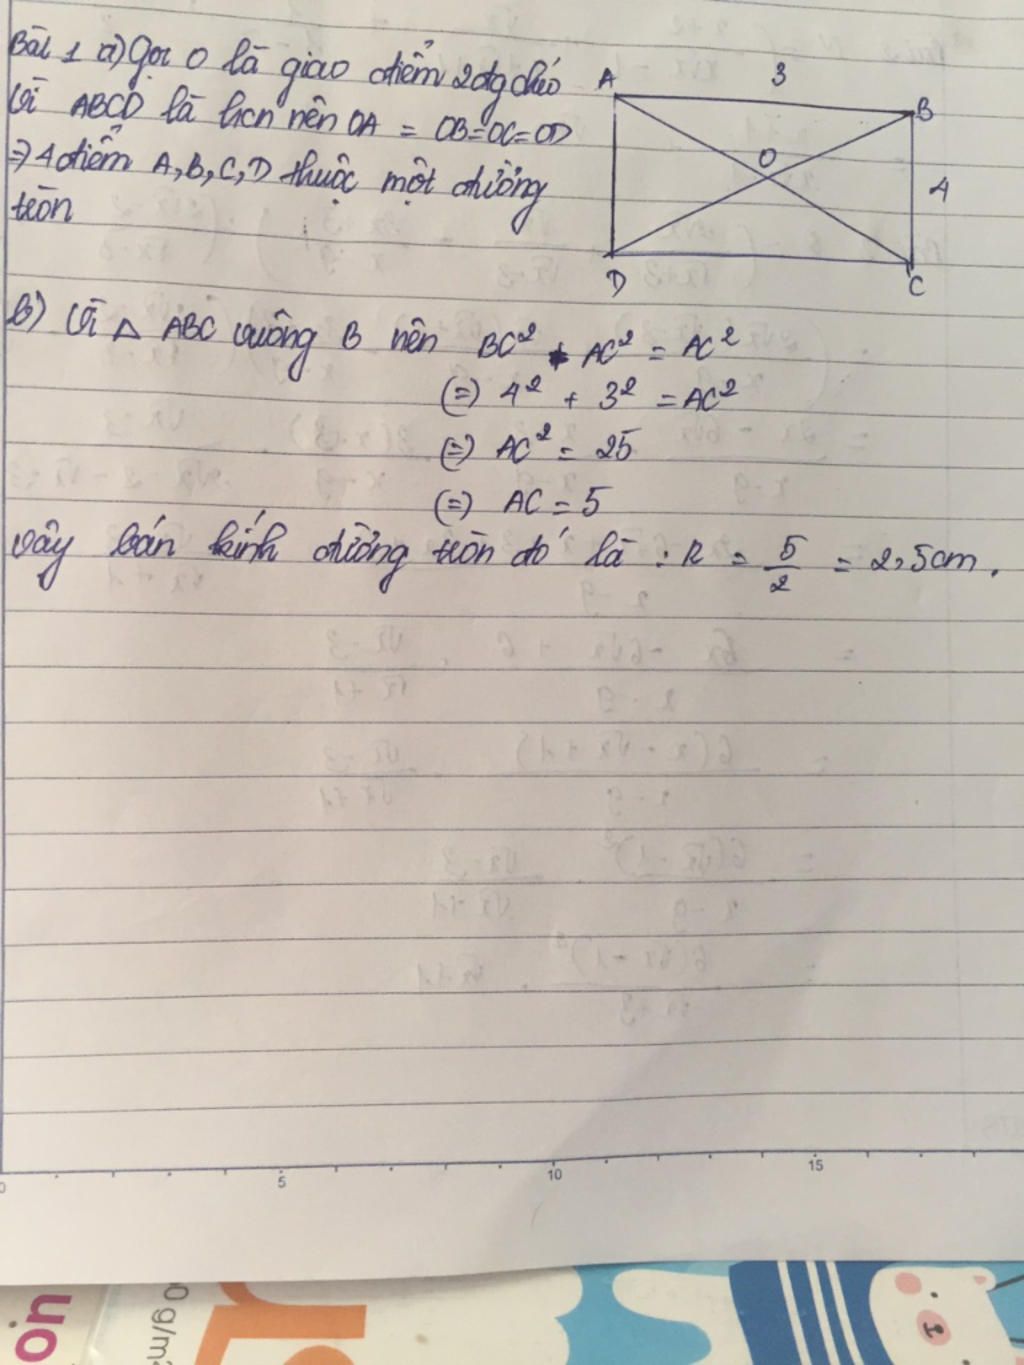 Bài 1 a) Gọi O là giao điểm 2 đg chéo
Vì ABCD là hcn nên OA = OB=OC=OD
=> 4 điểm A, B, C, D thuộc một đường
tròn
A
3
B
O
4
D
C
b) Vì △ ABC vuông B nên BC² + AC² = AC²
(=) 4² + 3² = AC²
(=) AC² = 25
(=) AC = 5
vậy bán kính đường tròn đó là : R = 5/2 = 2,5cm.
0 5 10 15
on
0 g/m